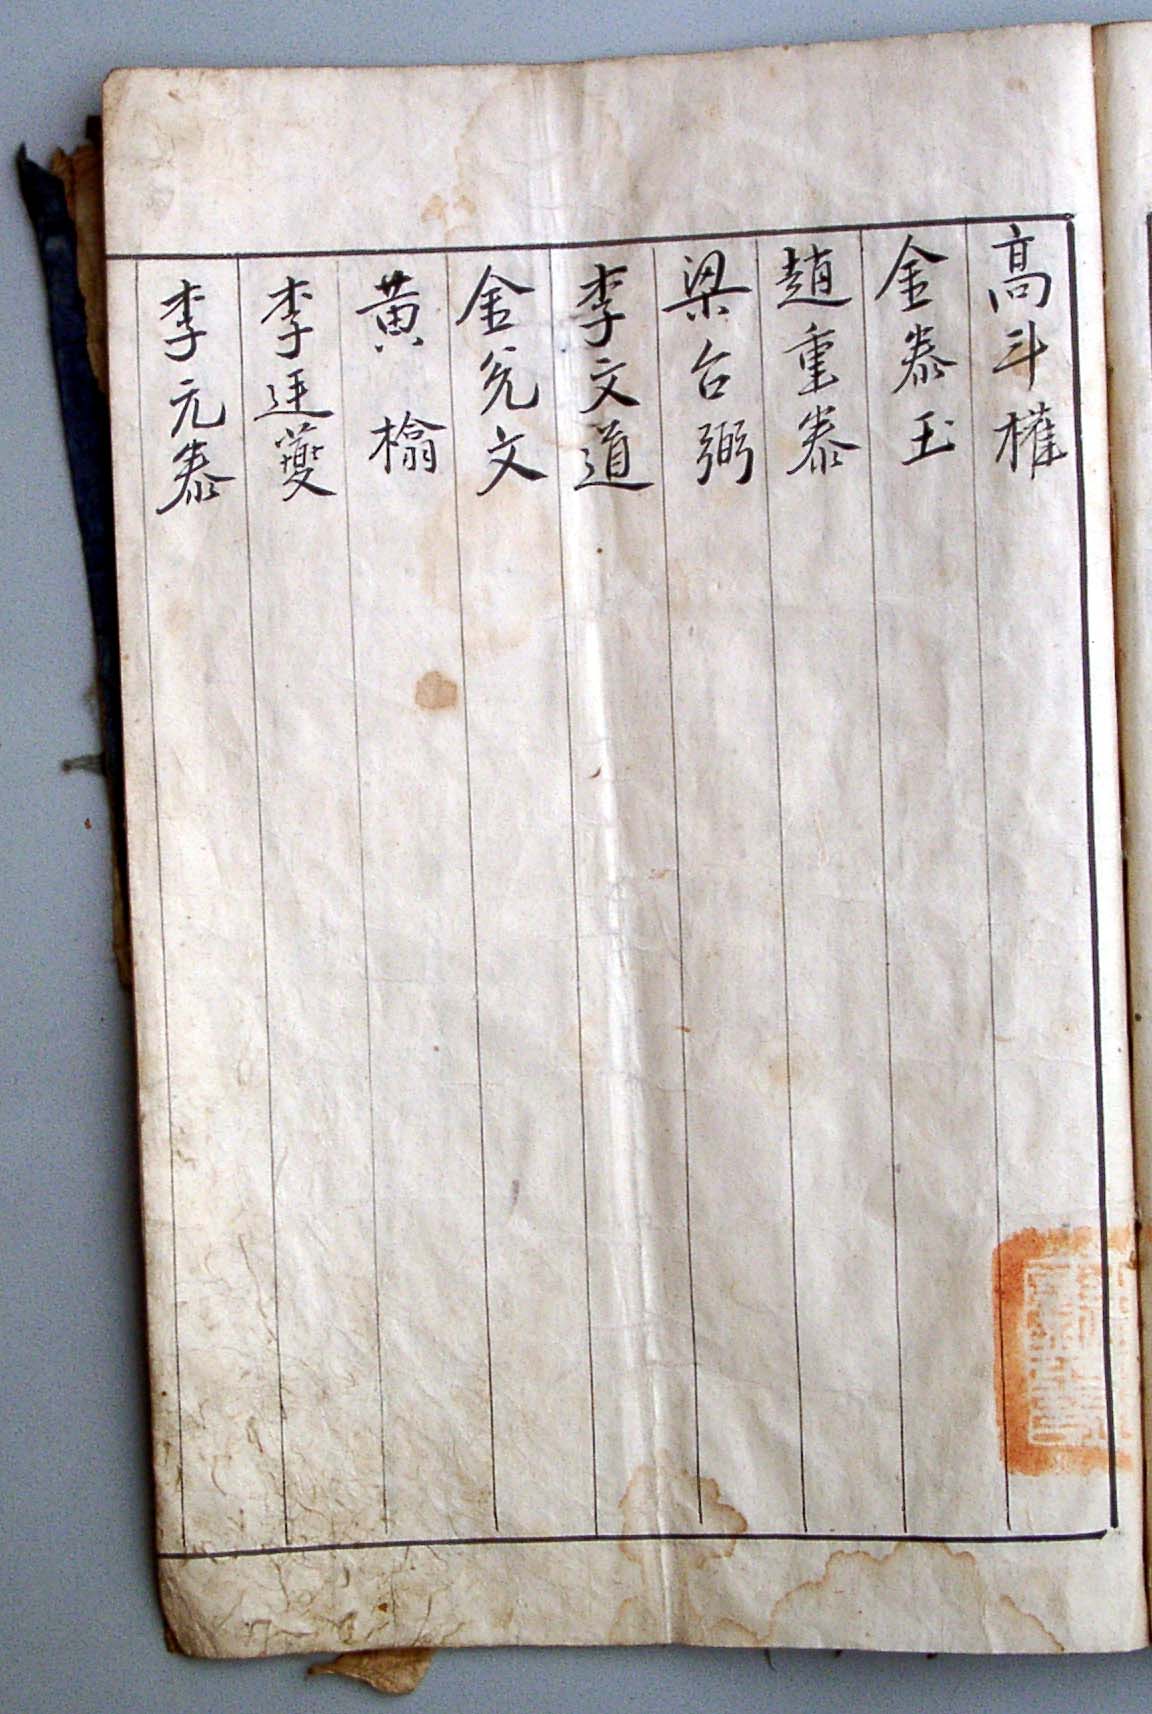 高斗權
金泰玉
趙重泰
梁台弼
李文道
金允文
黄櫓
李廷夔
李元泰